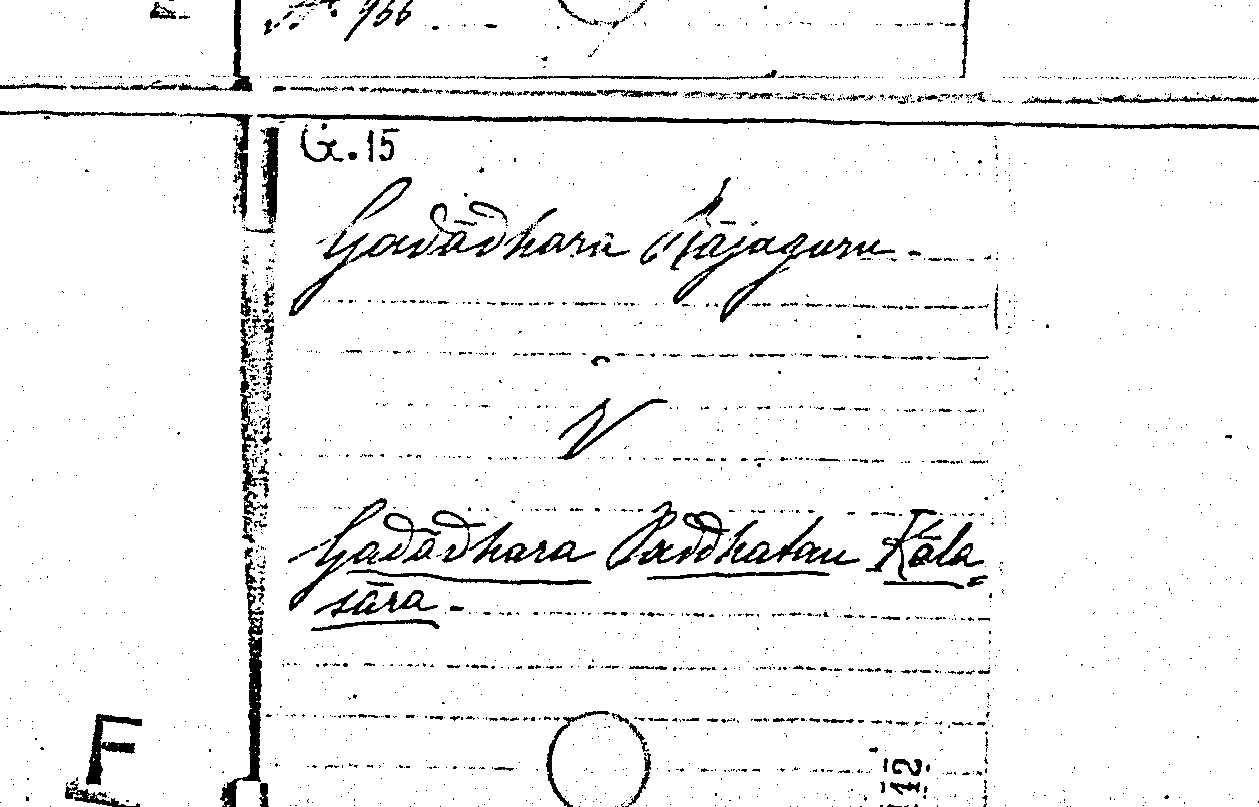 № 966.
G.15
Gadādhara Rājaguru.
V
Gadādhara Paddhatau Kāla=
sāra.
F